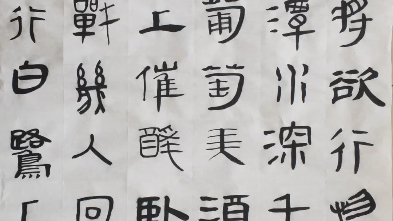 將欲行忽
潭水深千
葡萄美酒
上催醉臥
戰幾人回
行白鷺上